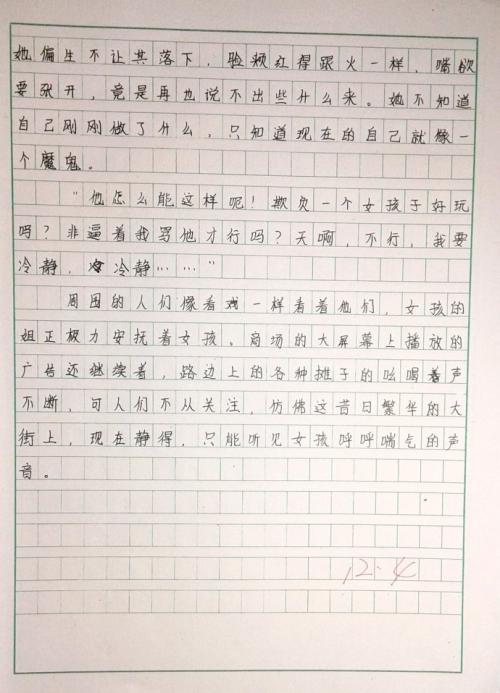 她偏生不让其落下，脸颊红得跟火一样，嘴欲
要张开，竟是再也说不出些什么来。她不知道
自己刚刚做了什么，只知道现在的自己就像一
个魔鬼。
“他怎么能这样呢！欺负一个女孩子好玩
吗？非逼着我骂他才行吗？天啊，不行，我要
冷静，冷静……”
周围的人们像看戏一样看着他们，女孩的
姐正极力安抚着女孩。商场的大屏幕上播放的
广告还继续着，路边上的各种摊子的吆喝着声
不断，可人们不从关注，仿佛这昔日繁华的大
街上，现在静得，只能听见女孩呼呼喘气的声
音。
12.4